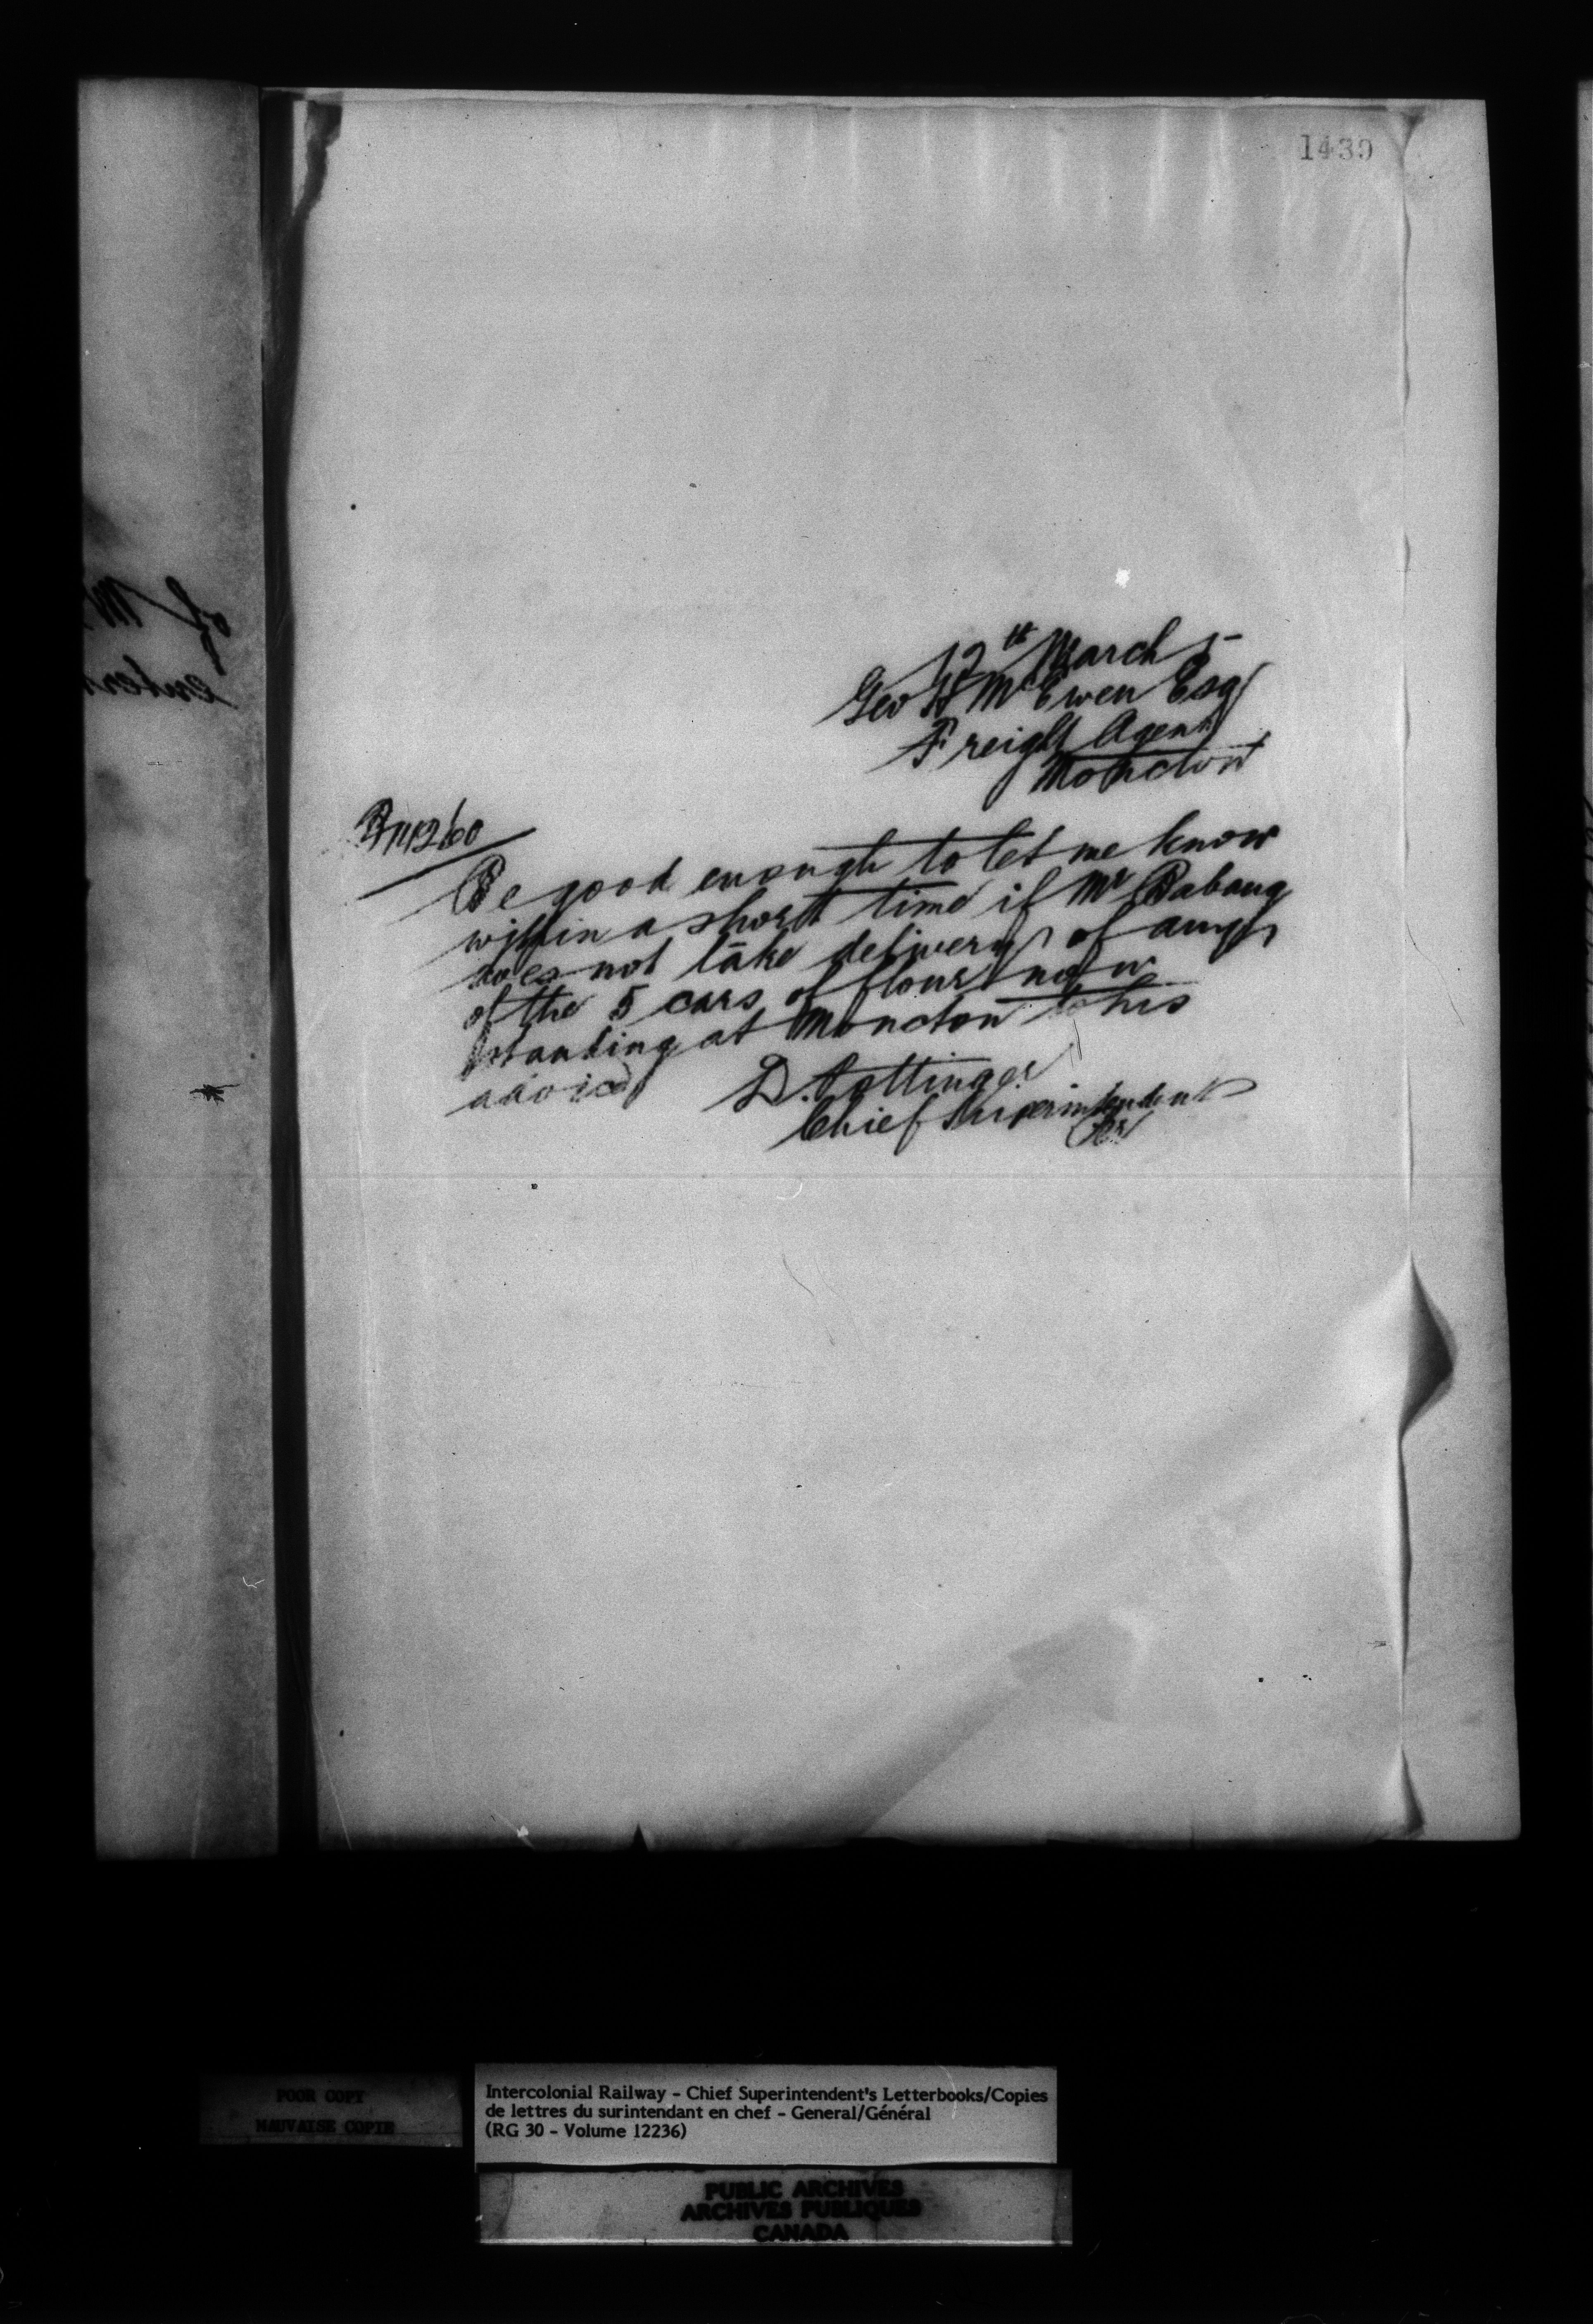 1439
12th March 5
Geo H McEwen Esq
Freight Agent
Moncton
Be good enough to let me know
within a short time if Mr Babang
does not take delivery of any
of the 5 cars of flour now
standing at Moncton to his
advice
D. Pottinger
Chief Superintendent
Per
POOR COPY
MAUVAISE COPIE
Intercolonial Railway - Chief Superintendent's Letterbooks/Copies
de lettres du surintendant en chef - General/Général
(RG 30 - Volume 12236)
PUBLIC ARCHIVES
ARCHIVES PUBLIQUES
CANADA